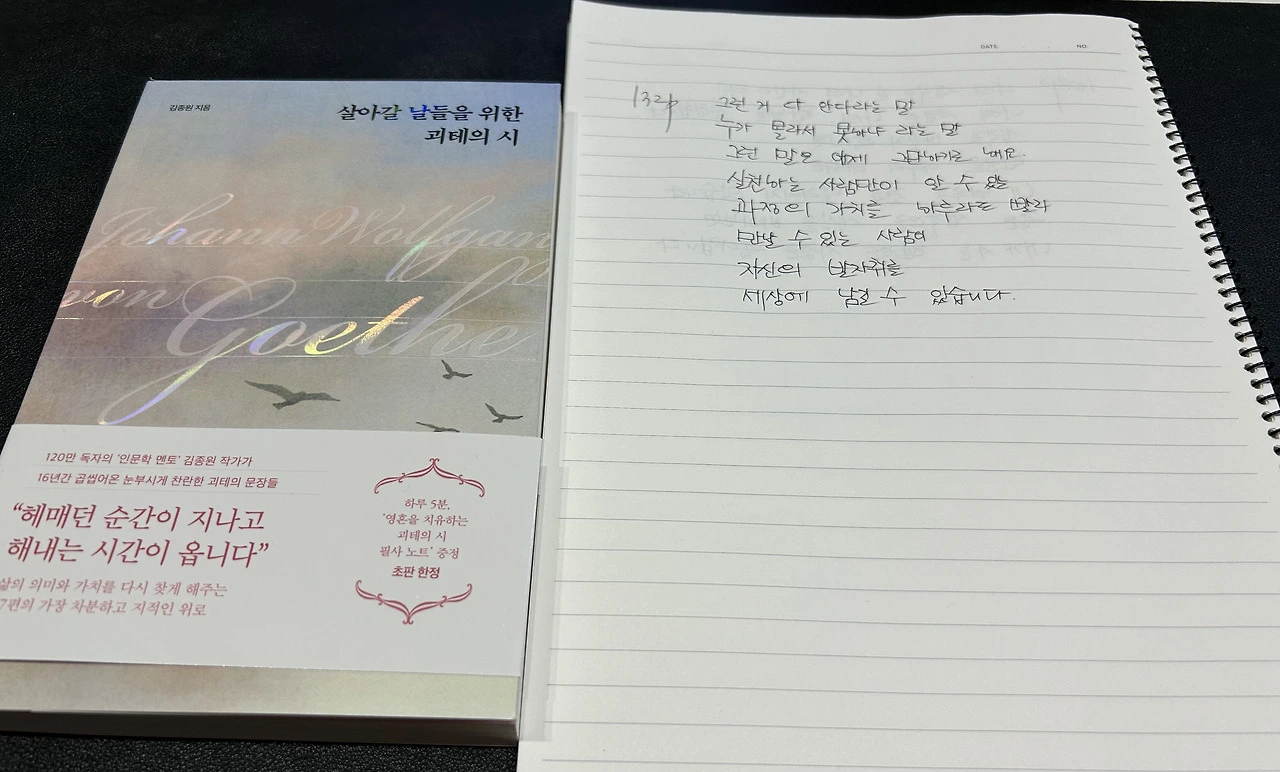 김종원 지음
살아갈 날들을 위한
괴테의 시
Johann Wolfgang
von
Goethe
120만 독자의 '인문학 멘토' 김종원 작가가
16년간 곱씹어온 눈부시게 찬란한 괴테의 문장들
“헤매던 순간이 지나고
해내는 시간이 옵니다”
삶의 의미와 가치를 다시 찾게 해주는
7편의 가장 차분하고 지적인 위로
하루 5분,
'영혼을 치유하는
괴테의 시
필사 노트' 증정
초판 한정
DATE. NO.
132p
그런 거 다 안다라는 말
누가 몰라서 못하냐 라는 말
그런 말은 이제 그만하기로 해요.
실천하는 사람만이 알 수 있는
과정의 가치를 하루라도 빨리
만날 수 있는 사람이
자신의 발자취를
세상에 남길 수 있습니다.